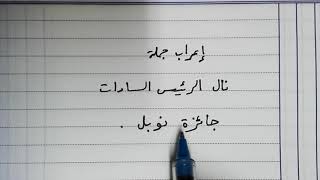 إعراب جملة
نال الرئيس السادات
جائزة نوبل .